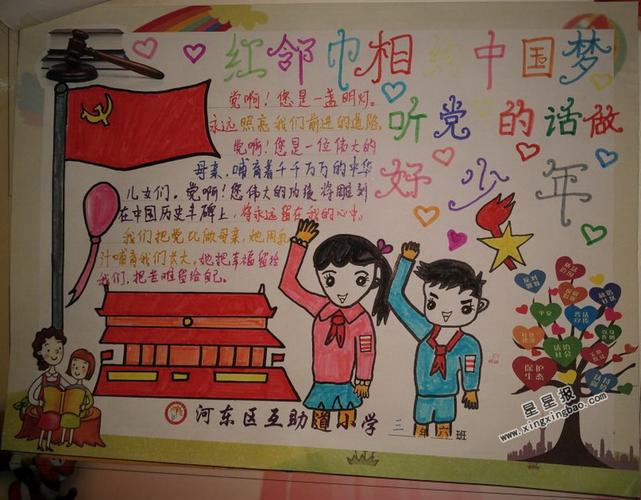 红邻巾相约中国梦
听党的话做
好少年
党啊！您是一盏明灯。
永远照亮我们前进的道路。
党啊！您是一位伟大的
母亲，哺育着千千万万的中华
儿女们。党啊！您伟大的功绩将雕刻
在中国历史丰碑上，将永远留在我的心中。
我们把党比做母亲，她用乳
汁哺育我们长大。她把幸福留给
我们，把苦难留给自己。
平安
法治
社会
保护
生态
河东区互助道小学
三年六班
星星报
www.xingxingbao.com